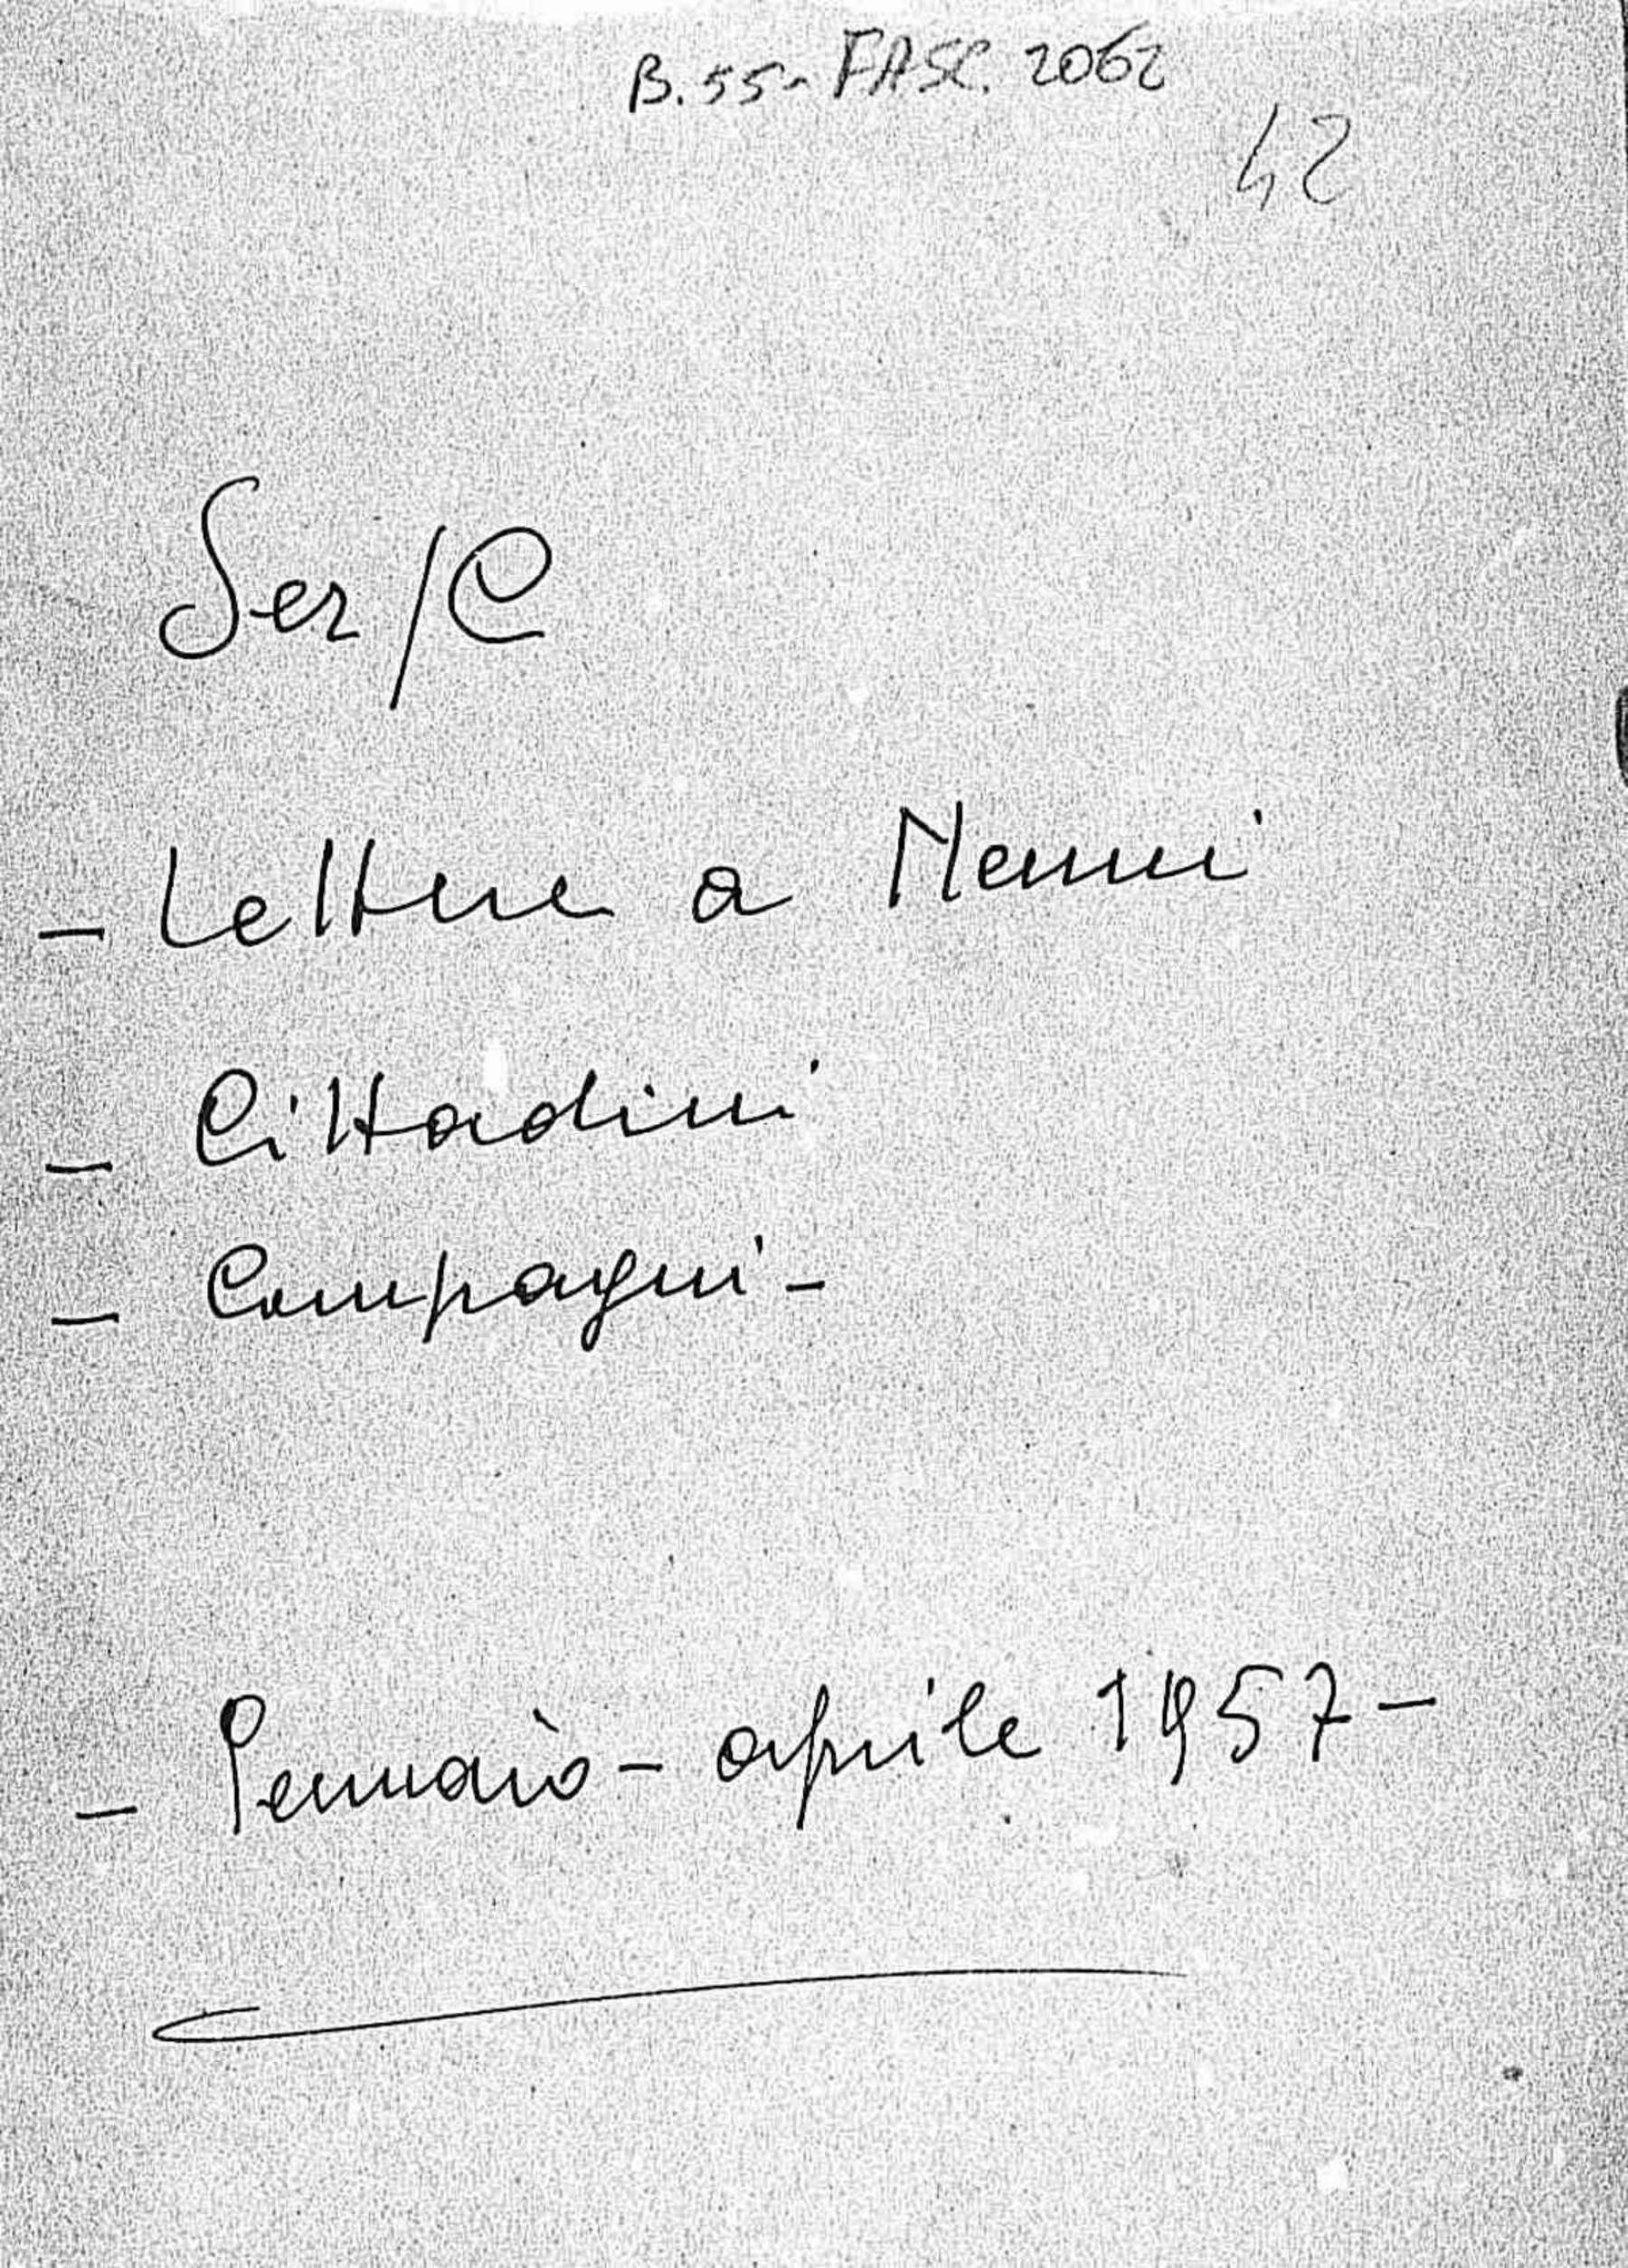 B.55- FASC. 2062
42
Ser/C
- Lettere a Nenni
- Cittadini
- Compagni -
- Gennaio - aprile 1957 -